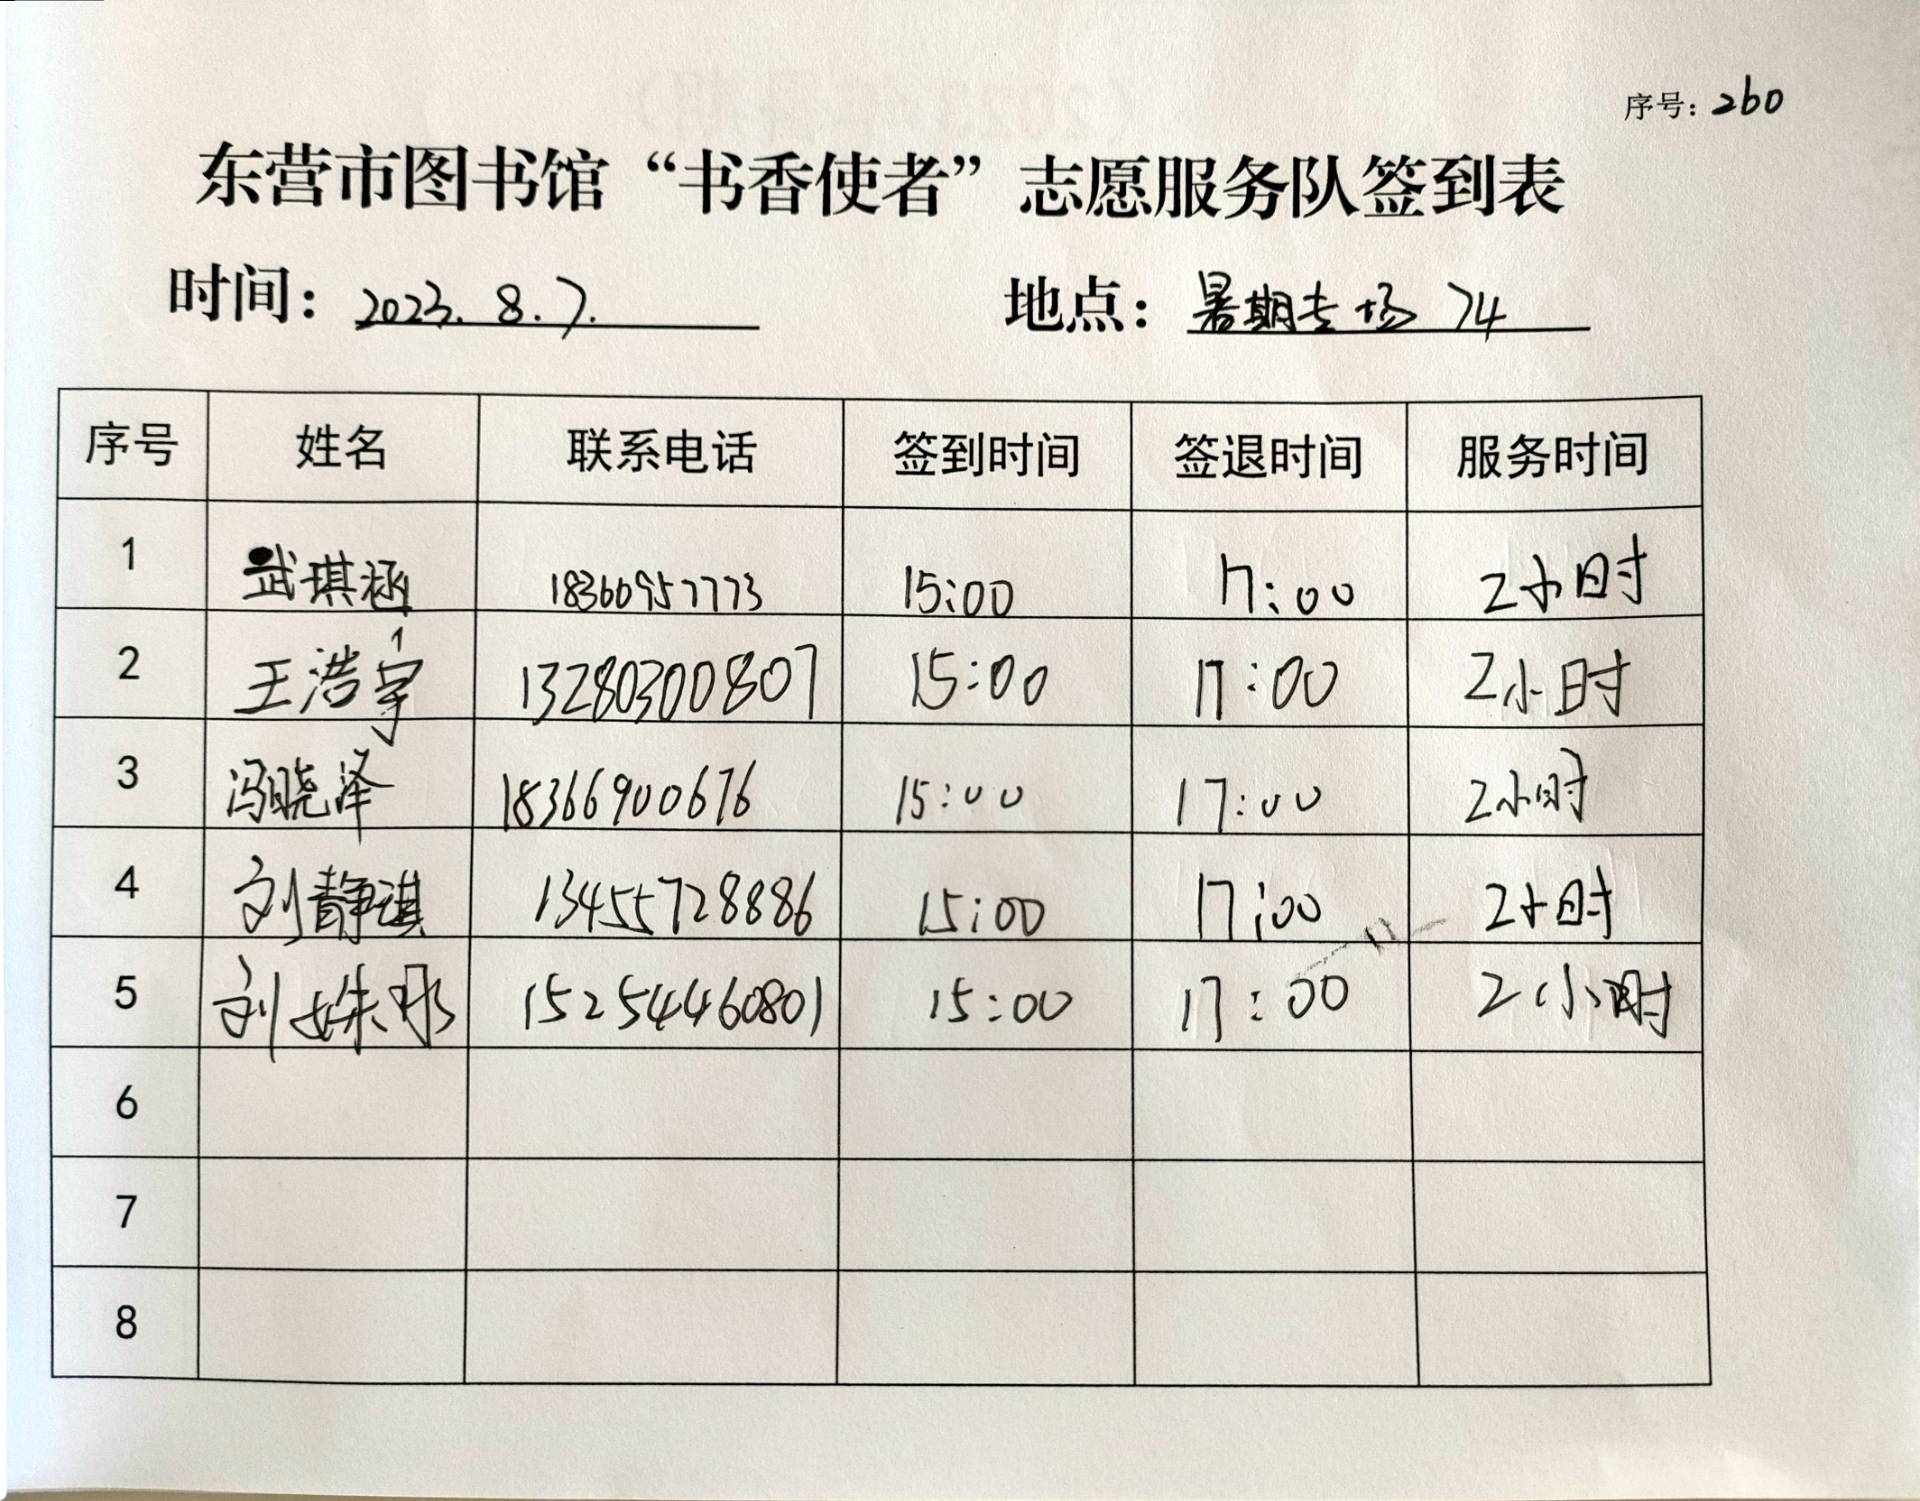 序号：260
东营市图书馆“书香使者”志愿服务队签到表
时间：2023.8.7. 地点：暑期专场 74
序号 姓名 联系电话 签到时间 签退时间 服务时间
1 武琪涵 18360957773 15:00 17:00 2小时
2 王浩宇 13280300807 15:00 17:00 2小时
3 冯晓泽 18366900676 15:00 17:00 2小时
4 刘静琪 13455728886 15:00 17:00 2小时
5 刘姝彤 15254460801 15:00 17:00 2小时
6
7
8